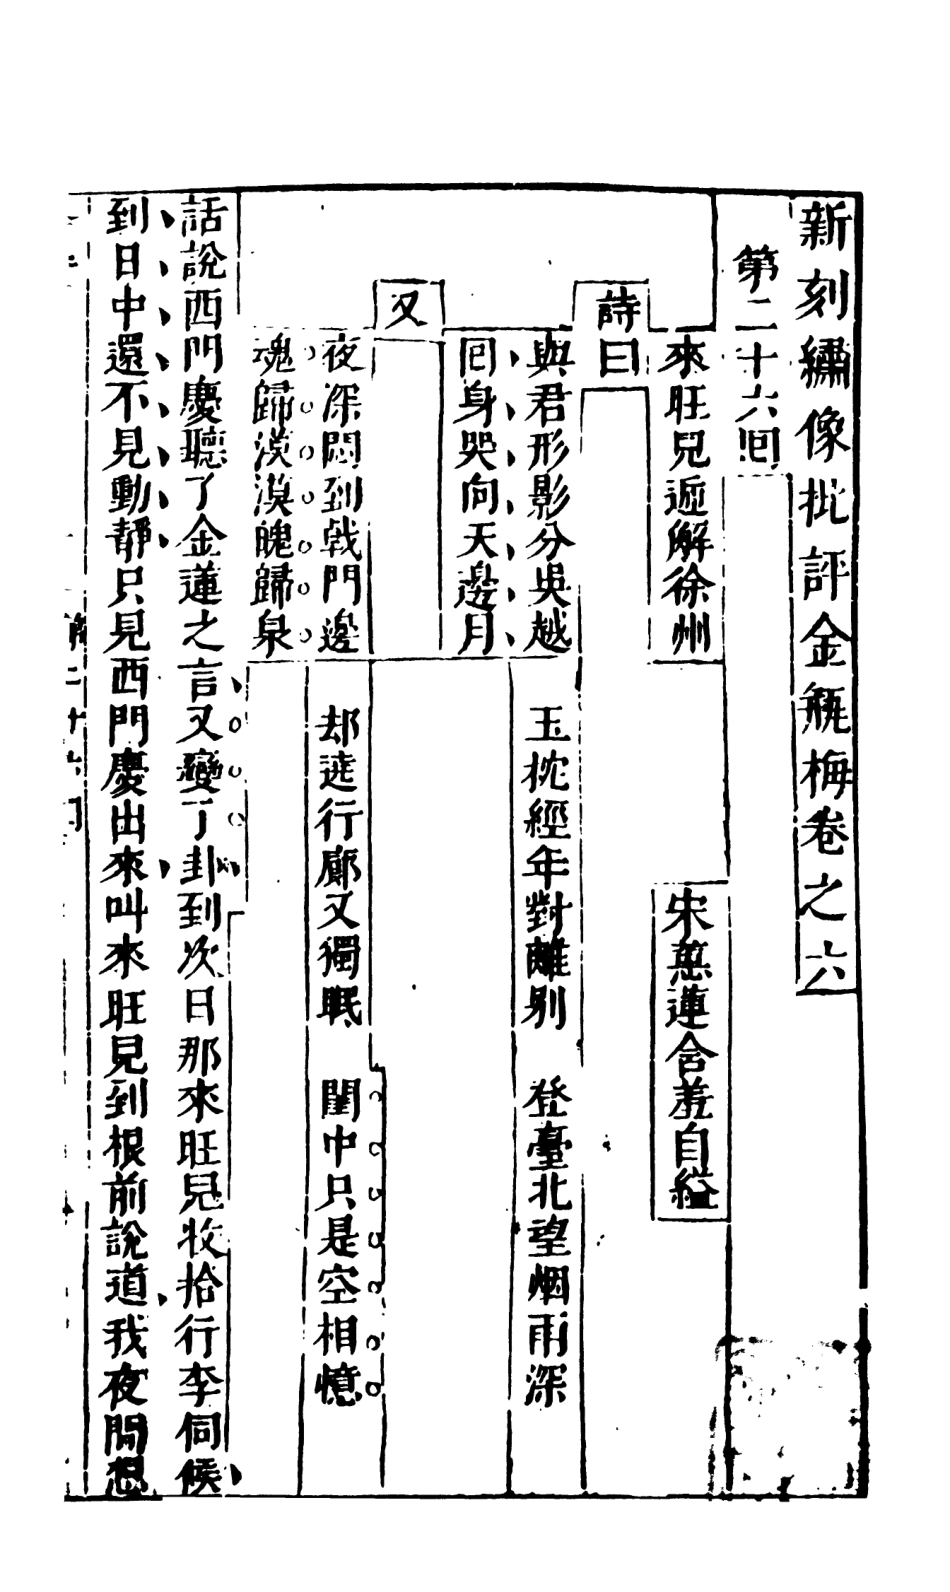 新刻繡像批評金瓶梅卷之六
第二十六囘
來旺兒遞解徐州　宋蕙蓮含羞自縊
詩曰
與君形影分吳越　玉枕經年對離別　登臺北望烟雨深
囘身哭向天邊月
又
夜深悶到戟門邊　却遶行廊又獨眠　閨中只是空相憶
魂歸漠漠魄歸泉
話說西門慶聽了金蓮之言又變了卦到次日那來旺兒收拾行李伺候
到日中還不見動靜只見西門慶出來叫來旺兒到根前說道我夜間想
第二十六囘